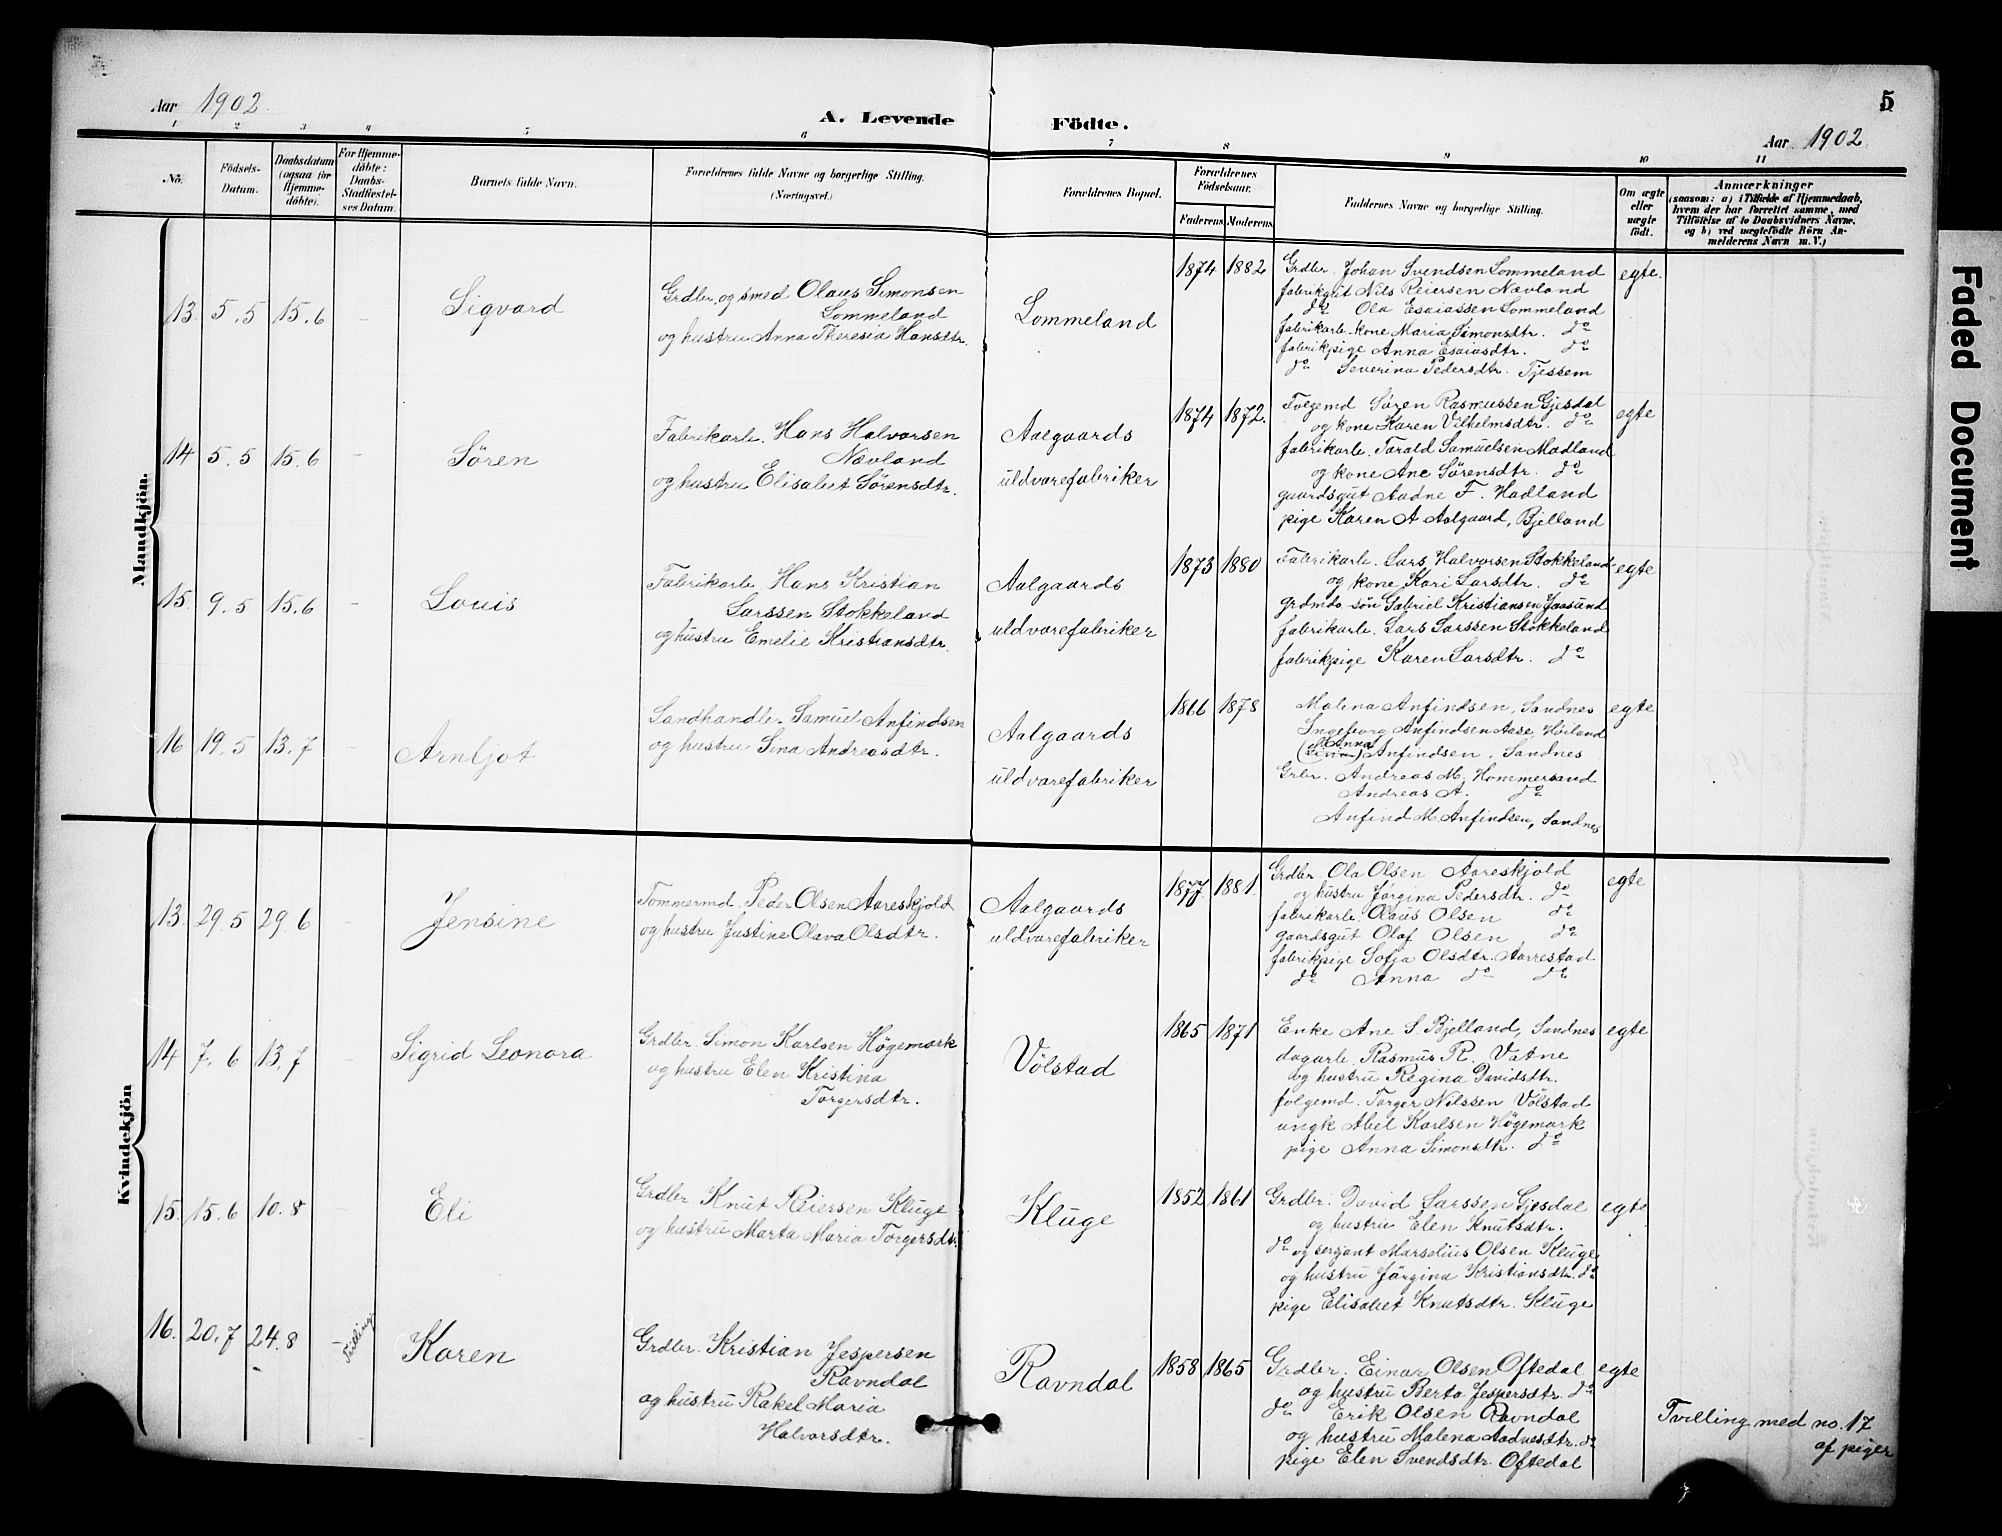 Aar 1902
A. Levende Födte.
5
Aar 1902
1 2 3 4 5 6 7 8 9 10 11
No.
Födsels-Datum.
Daabsdatum (ogsaa for Hjemme-döbte).
For Hjemme-döbte: Daabs-Stadfæstel-ses Datum.
Barnets fulde Navn.
Forældrenes fulde Navne og borgerlige Stilling.
(Næringsvei.)
Forældrenes Bopæl.
Forældrenes Födselsaar.
Faderens Moderens
Faddernes Navne og borgerlige Stilling.
Om ægte eller uægte födt.
Anmærkninger
(saasom: a) i Tilfælde af Hjemmedaab,
hvem der har forrettet samme, med
Tilföielse af to Daabsvidners Navne,
og b) ved uægtefödte Börn An-
melderens Navn m. V.)
Mandkjön.
13. 5.5 15.6 Sigvard
Grdbr. og smed Olaus Simonsen
Lommeland
og hustru Anna Theresia Hansdtr.
Lommeland
1874 1882
Grdbr. Johan Svendsen Lommeland
fabrikgut Nils Reiersen Nævland
do Ola Esaiassen Lommeland
fabrikarb. kone Maria Simonsdtr. do
fabrikpige Anna Esaiasdtr. do
do Severina Pedersdtr. Tjessem
egte.
14 5.5 15.6 Sören
Fabrikarb. Hans Halvorsen
Nævland
og hustru Elisabet Sörensdtr.
Aalgaards
uldvarefabriker
1874 1872.
Folgemd Sören Rasmussen Gjesdal
og kone Karen Vilhelmsdtr. do
fabrikarb. Tarald Samuelsen Madland
og kone Ane Sörensdtr. do
gaardsgut Aadne F. Hadland
pige Karen A Aalgaard, Bjelland
egte
15. 9.5 15.6 Louis
Fabrikarb. Hans Kristian
Larssen Stokkeland
og hustru Emelie Kristiansdtr.
Aalgaards
uldvarefabriker
1873 1880
Fabrikarb. Lars Halvorsen Stokkeland
og kone Kari Larsdtr. do
grdmds sön Gabriel Kristiansen Jaasund
fabrikarb. Lars Larssen Stokkeland
fabrikpige Karen Larsdtr. do
egte
16 19.5 13.7 Arnljot
Landhandler Samuel Anfindsen
og hustru Sina Andreasdtr.
Aalgaards
uldvarefabriker
1866 1878
Malena Anfindsen, Sandnes
Ingeborg Anfindsen Aase, Höiland
Anna
Anfindsen, Sandnes
Grbr. Andreas M. Hommersand
Andreas A. do
Anfind M Anfindsen, Sandnes
egte
Kvindekjön
13. 29.5 29.6 Jensine
Tommermd. Peder Olsen Aareskjold
og hustru Justine Olava Olsdtr.
Aalgaards
uldvarefabriker
1877. 1881.
Grdbr. Ola Olsen Aareskjold
og hustru Jörgina Pedersdtr. do
fabrikarb. Olaus Olsen do
gaardsgut Olaf Olsen do
fabrikpige Sofja Olsdtr. Aarrestad
do Anna do do
egte
14 7.6 13.7 Sigrid Leonora
Grdbr. Simon Karlsen Högemark
og hustru Elen Kristina
Torgersdtr.
Völstad
1865 1871
Enke Ane S. Bjelland, Sandnes
dagarb. Rasmus R. Vatne
og hustru Regina Davidsdtr.
folgemd. Torger Nilssen Völstad
ungk Abel Karlsen Högemark
pige Anna Simonsdtr. do
egte
15. 15.6 10.8 Eli
Grdbr. Knut Reiersen Kluge
og hustru Marta Maria Torgersdtr.
Kluge
1852 1861
Grdbr. David Larssen Gjesdal
og hustru Elen Knutsdtr.
do og serjant Marselius Olsen Kluge
og hustru Jörgina Kristiansdtr. do
pige Elisabet Knutsdtr. Kluge
egte
16. 20.7 24.8 Tvilling Karen
Grdbr. Kristian Jespersen
Ravndal
og hustru Rakel Maria
Halvorsdtr.
Ravndal
1858 1865
Grdbr. Einar Olsen Oftedal
og hustru Berta Jespersdtr. do
do Erik Olsen Ravndal
og hustru Malena Aadnesdtr. do
pige Elen Svendsdtr. Oftedal
egte
Tvilling med no. 17
af piger
Faded Document